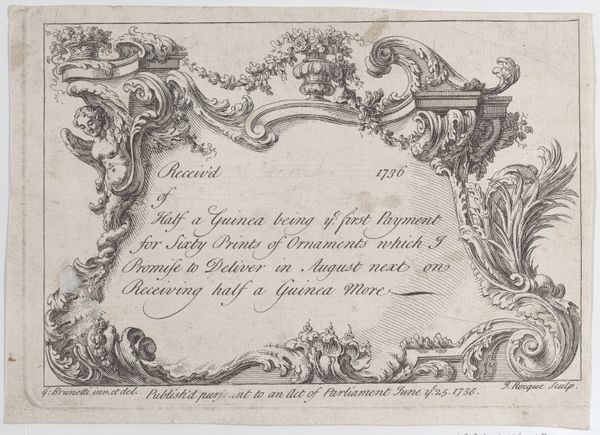 Receiv'd 1736
of
Half a Guinea being yᵉ first Payment
for Sixty Prints of Ornaments which I
Promise to Deliver in August next on
Receiving half a Guinea More
G: Brunetti inv. et del. Publish'd pursuant to an Act of Parliament June yᵉ 25. 1736. J. Rocque Sculp.